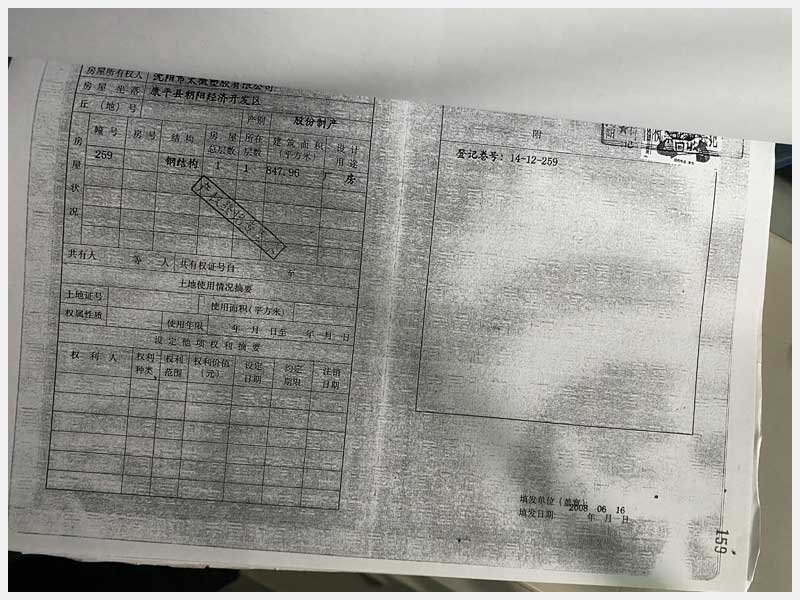 房屋所有权人 沈阳市太微塑胶有限公司
房屋坐落 康平县朝阳经济开发区
丘（地）号 产别 股份制产
房屋状况
幢号 房号 结构 房屋总层数 所在层数 建筑面积（平方米） 设计用途
259 钢结构 1 1 847.96 厂房
共有人 等 人 共有权证号自 至
土地使用情况摘要
土地证号 使用面积(平方米)
权属性质 使用年限 年 月 日至 年 月 日
设定他项权利摘要
权利人 权利种类 权利范围 权利价值（元） 设定日期 约定期限 注销日期
附
登记卷号：14-12-259
填发单位（盖章）
填发日期： 2008 年 06 月 16 日
159